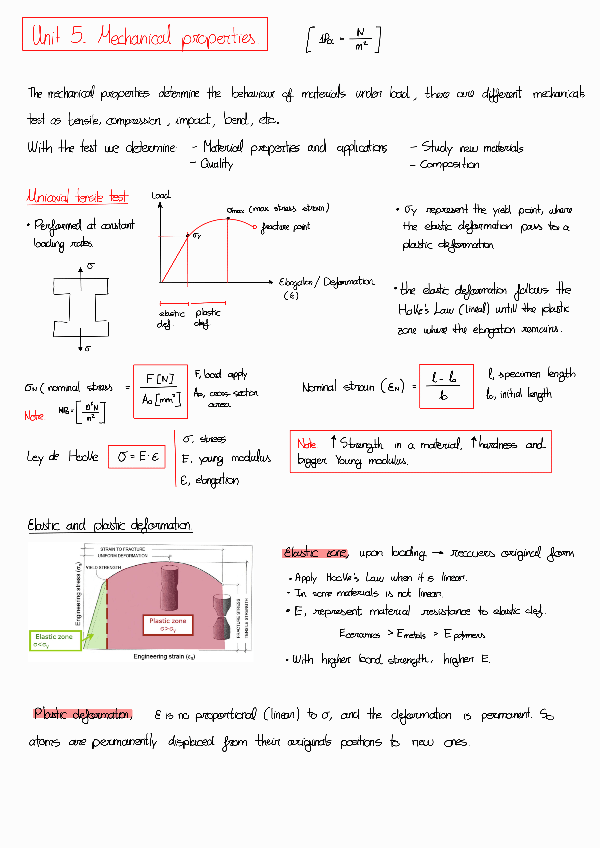 Unit 5. Mechanical properties
[ 1Pa = N/m² ]
The mechanical properties determine the behaviour of materials under load, there are different mechanicals
test as tensile, compression, impact, bend, etc.
With the test we determine: - Material properties and applications - Study new materials
- Quality - Composition
Uniaxial tensile test
• Performed at constant
loading rates.
σ
σ
Load
σmax (max stress strain)
fracture point
σy
Elongation / Deformation
(ε)
elastic def. plastic def.
• σy represent the yield point, where
the elastic deformation pass to a
plastic deformation
• the elastic deformation follows the
Hooke's Law (lineal) untill the plastic
zone where the elongation remains.
σN (nominal stress = F [N] / A₀ [mm²]
F, load apply
A₀, cross-section
area
Note MPa = [ 10⁶N / m² ]
Nominal strain (εN) = l - l₀ / l₀
l, specimen length
l₀, initial length
Ley de Hooke σ = E · ε
σ, stress
E, young modulus
ε, elongation
Note ↑ Strength in a material, ↑ hardness and
bigger Young modulus.
Elastic and plastic deformation
STRAIN TO FRACTURE
UNIFORM DEFORMATION
YIELD STRENGTH
Engineering stress (σN)
Plastic zone
σ>σy
Elastic zone
σ<σy
FRACTURE STRESS
TENSILE STRENGTH
Engineering strain (εN)
Elastic zone, upon loading → recovers original form
• Apply Hooke's Law when it is linear.
• In some materials is not linear.
• E, represent material resistance to elastic def.
Eceramics > Emetals > Epolymers
• With higher bond strength, higher E.
Plastic deformation, ε is no proportional (linear) to σ, and the deformation is permanent. So
atoms are permanently displaced from their originals positions to new ones.